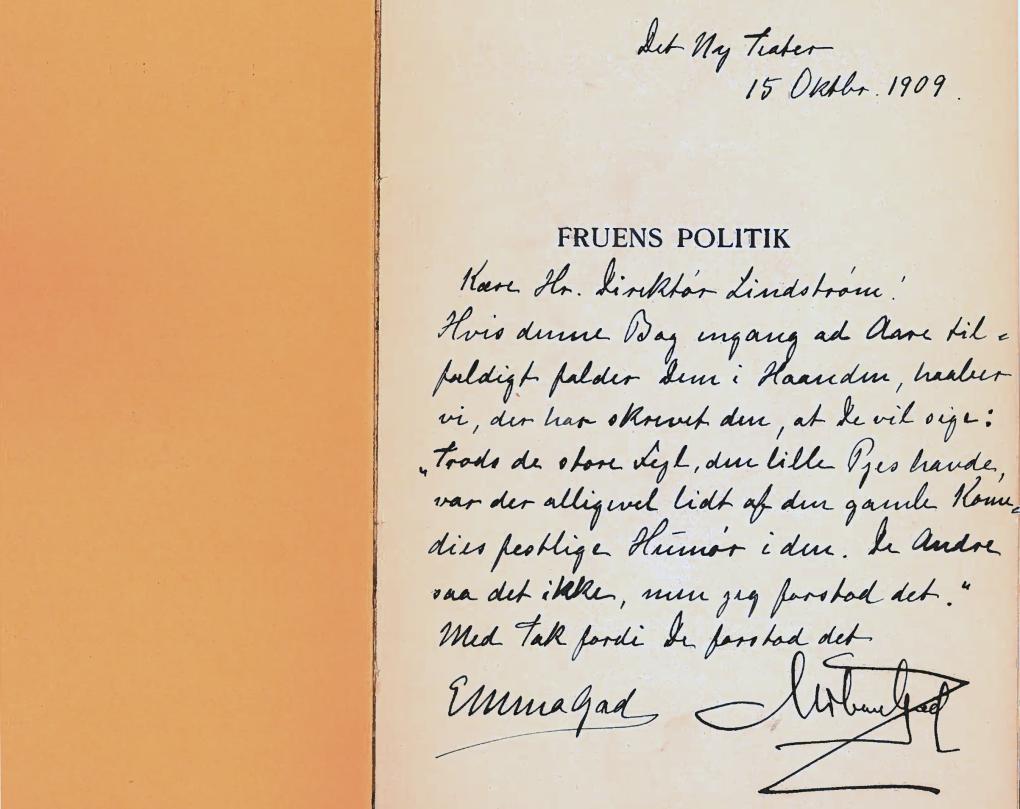 Det Ny Teater
15 Oktbr. 1909.
FRUENS POLITIK
Kære Hr. Direktør Lindstrøm!
Hvis denne Bog engang ad Aare til=
fældigt falder Dem i Haanden, haaber
vi, der har skrevet den, at De vil sige:
„Trods de store Fejl, den lille Pjes havde,
var der alligevel lidt af den gamle Kome=
dies festlige Humør i den. De Andre
saa det ikke, men jeg forstod det.“
Med Tak fordi De forstod det
Emma Gad
Urban Gad